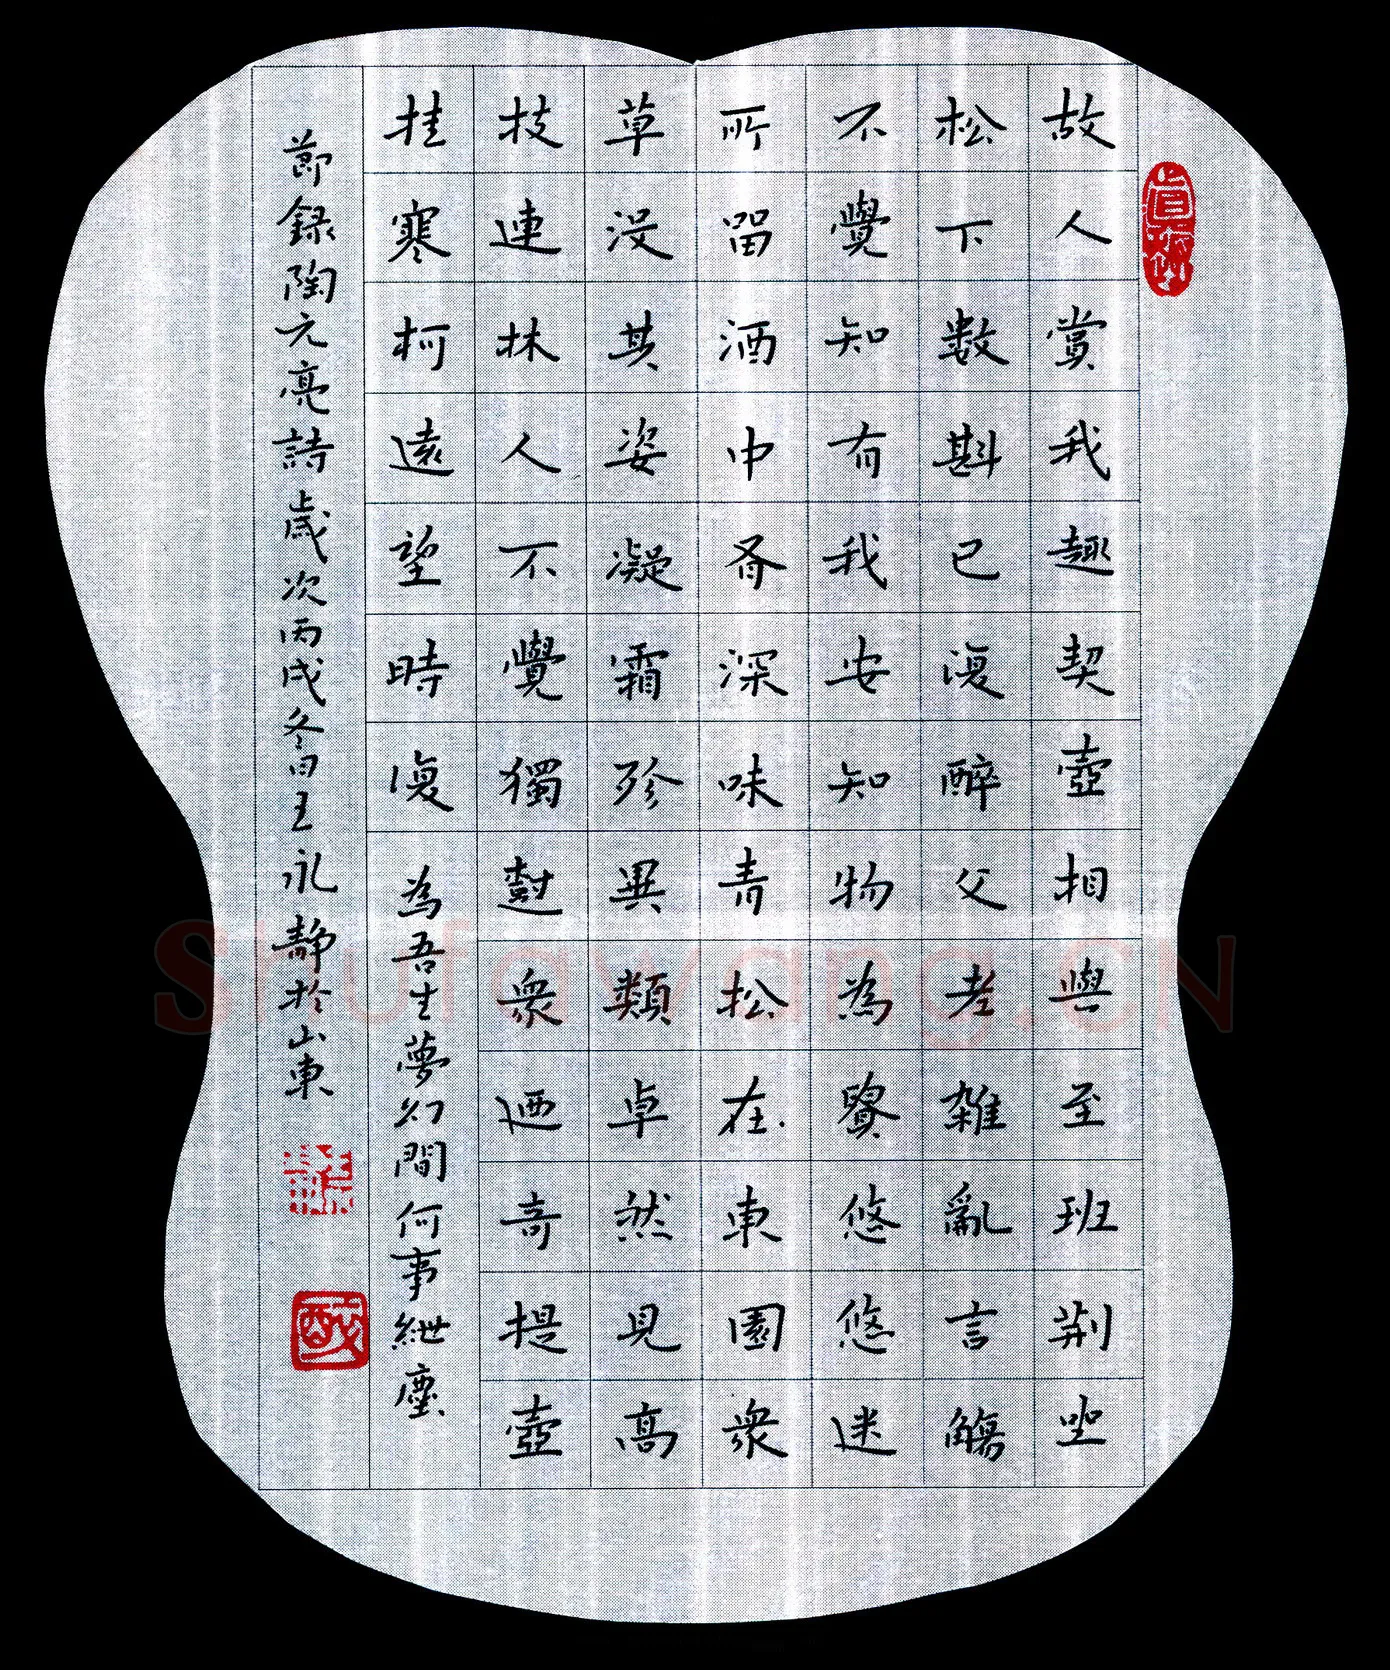 故人賞我趣契壺相與至班荆坐
松下数斟已復醉父老雜亂言觴
不覺知有我安知物為賢悠悠迷
所留酒中有深味青松在東園衆
草没其姿凝霜殄異類卓然見高
枝連林人不覺獨樹衆迺奇提壺
挂寒柯遠望時復為吾生夢幻間何事紲塵
節録陶元亮詩歲次丙戌冬日王永静於山東
Shufawang.CN